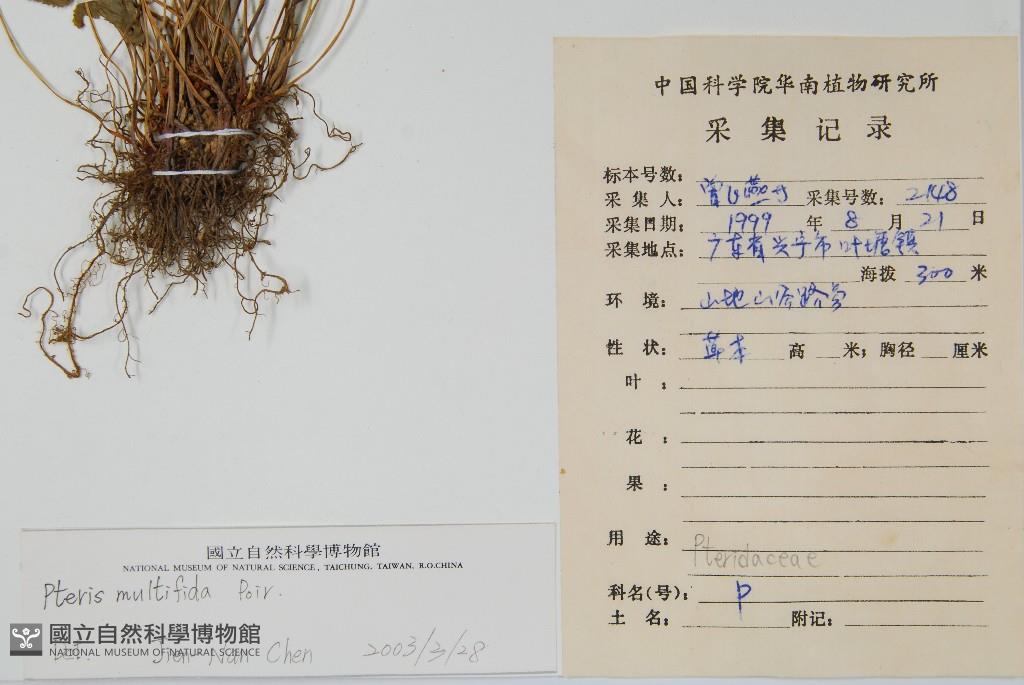 中国科学院华南植物研究所
采集记录
标本号数:
采集人: 采集号数: 2148
采集日期: 1999 年 8 月 21 日
采集地点: 广东省兴宁市叶塘镇
海拨 300 米
环境: 山地山谷路旁
性状: 草本 高 米; 胸径 厘米
叶:
花:
果:
用途:
Pteridaceae
科名(号): P
土名: 附记:
國立自然科學博物館
NATIONAL MUSEUM OF NATURAL SCIENCE, TAICHUNG, TAIWAN, R.O.CHINA
Pteris multifida Poir.
國立自然科學博物館
NATIONAL MUSEUM OF NATURAL SCIENCE
Det. Jien-Nan Chen 2003/3/28